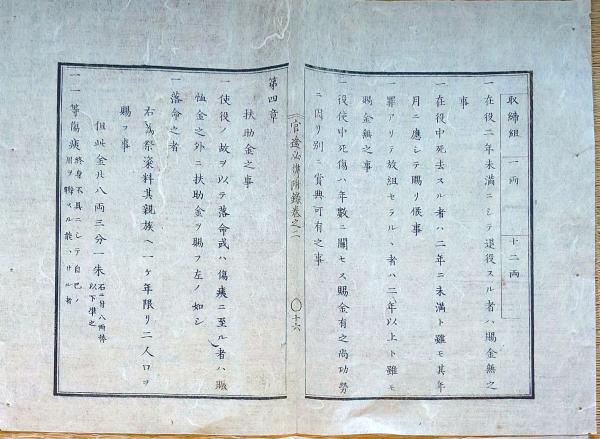 取締組 一両 十二両
一在役二年未満ニシテ退役スル者ハ賜金無之
事
一在役中死去スル者ハ二年ニ未満ト雖モ其年
月ニ應シテ賜リ候事
罪アリテ放組セラルヽ者ハ二年以上ト雖モ
賜金無之事
一役使中死傷ハ年數ニ關セス賜金有之尚功勞
ニ因リ別ニ賞典可有之事
官途必携附録巻之二 〇十六
第四章
扶助金之事
一使役ノ故ヲ以テ落命或ハ傷痍ニ至ル者ハ賑
恤金之外ニ扶助金ヲ賜フ左ノ如シ
一落命之者
右為祭粢料其親族ヘ一ヶ年限リ二人口ヲ
賜フ事
但此金凡八両三分一朱 石ニ付八両替
以下準之
一一等傷痍 終身不具ニシテ自己ノ
用ヲ辨スル能ハサル者